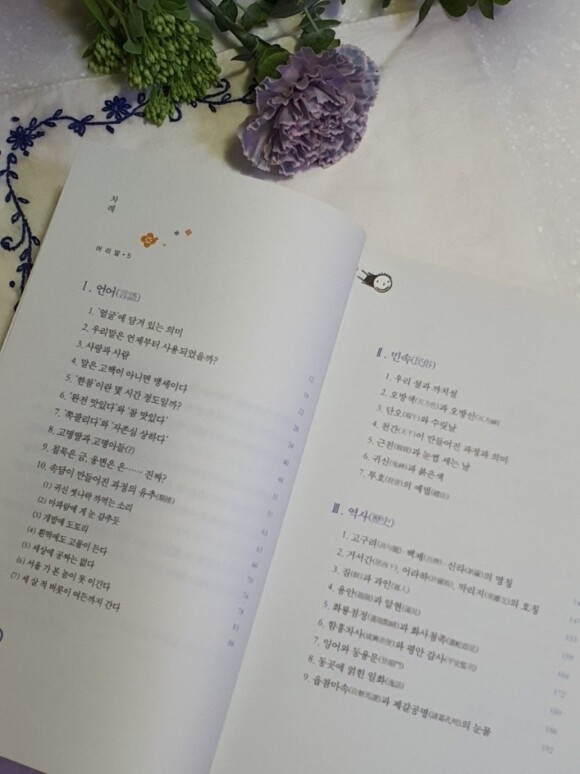 차례
머리말 • 5
Ⅰ. 언어(言語)
1. '얼굴'에 담겨 있는 의미
2. 우리말은 언제부터 사용되었을까?
3. 사랑과 사람
4. 말은 고백이 아니면 맹세이다
5. '한참'이란 몇 시간 정도일까?
6. '완전 맛있다'와 '꿀 맛있다'
7. '쪽팔리다'와 '자존심 상하다'
8. 고명딸과 고명아들(?)
9. 침묵은 금, 웅변은 은…… 진짜?
10. 속담이 만들어진 과정의 유추(類推)
(1) 귀신 씻나락 까먹는 소리
(2) 마파람에 게 눈 감추듯
(3) 개밥에 도토리
(4) 흰떡에도 고물이 든다
(5) 세상에 공짜는 없다
(6) 서울 가 본 놈이 못 이긴다
(7) 세 살 적 버릇이 여든까지 간다
Ⅱ. 민속(民俗)
1. 우리 설과 까치설
2. 오방색(五方色)과 오방신(五方神)
3. 단오(端午)와 수릿날
4. 천간(天干)이 만들어진 과정과 의미
5. 근친(覲親)과 눈썹 세는 날
6. 귀신(鬼神)과 붉은색
7. 투호(投壺)의 예법(禮法)
Ⅲ. 역사(歷史)
1. 고구려(高句麗)·백제(百濟)·신라(新羅)의 명칭
2. 거서간(居西干), 어라하(於羅瑕), 막리지(莫離支)의 호칭
3. 짐(朕)과 과인(寡人)
4. 용안(龍顔)과 알현(謁見)
5. 화룡점정(畵龍點睛)과 화사첨족(畵蛇添足)
6. 함흥차사(咸興差使)와 평안 감사(平安監司)
7. 잉어와 등용문(登龍門)
8. 동곳에 얽힌 일화(逸話)
9. 읍참마속(泣斬馬謖)과 제갈공명(諸葛孔明)의 눈물